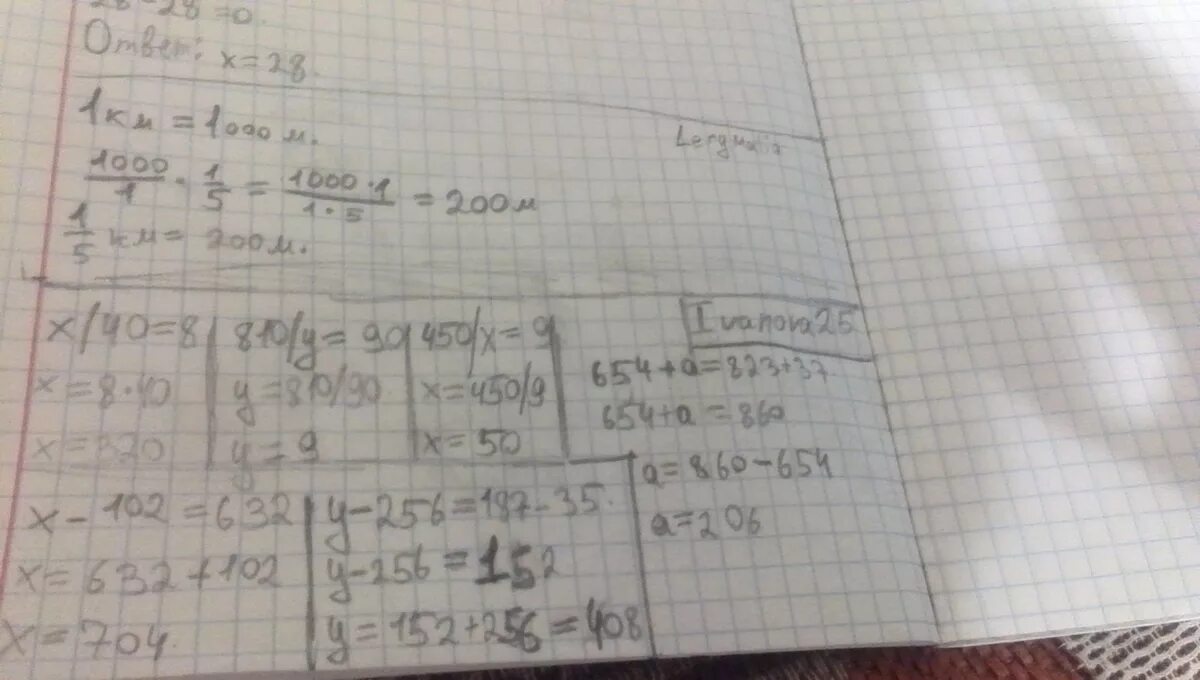 28-28=0
Ответ: x=28
1км = 1000м.
1000/1 · 1/5 = 1000·1/1·5 = 200м
1/5 км = 200м.
x/40=8
x=8·40
x=320
810/y=90
y=810/90
y=9
450/x=9
x=450/9
x=50
Ivanova25
654+a=823+37
654+a=860
a=860-654
a=206
x-102=632
x=632+102
x=704.
y-256=187-35.
y-256=152
y=152+256=408